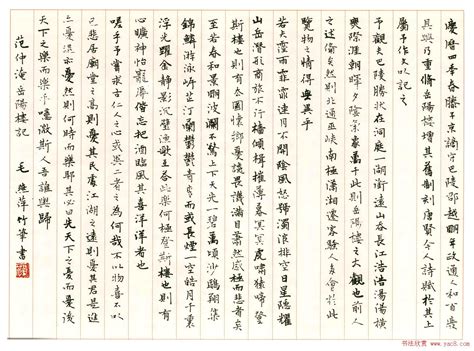 慶曆四年春滕子京謫守巴陵郡越明年政通人和百廢
具興乃重脩岳陽樓增其舊制刻唐賢今人詩賦於其上
屬予作文以記之
予觀夫巴陵勝狀在洞庭一湖銜遠山吞長江浩浩湯湯橫
無際涯朝暉夕陰氣象萬千此則岳陽樓之大觀也前人
之述備矣然則北通巫峽南極瀟湘遷客騷人多會於此
覽物之情得無異乎
若夫霪雨霏霏連月不開陰風怒號濁浪排空日星隱耀
山岳潛形商旅不行檣傾楫摧薄暮冥冥虎嘯猿啼登
斯樓也則有去國懷鄉憂讒畏譏滿目蕭然感極而悲者矣
至若春和景明波瀾不驚上下天光一碧萬頃沙鷗翔集
錦鱗游泳岸芷汀蘭鬱鬱青青而或長煙一空皓月千里
浮光躍金靜影沉璧漁歌互答此樂何極登斯樓也則有
心曠神怡寵辱偕忘把酒臨風其喜洋洋者也
嗟乎予嘗求古仁人之心或異二者之為何哉不以物喜不以
己悲居廟堂之高則憂其民處江湖之遠則憂其君是進
亦憂退亦憂然則何時而樂耶其必曰先天下之憂而憂後
天下之樂而樂乎噫微斯人吾誰與歸
范仲淹岳陽樓記 毛燕萍竹筆書
书法欣赏
www.yac8.com